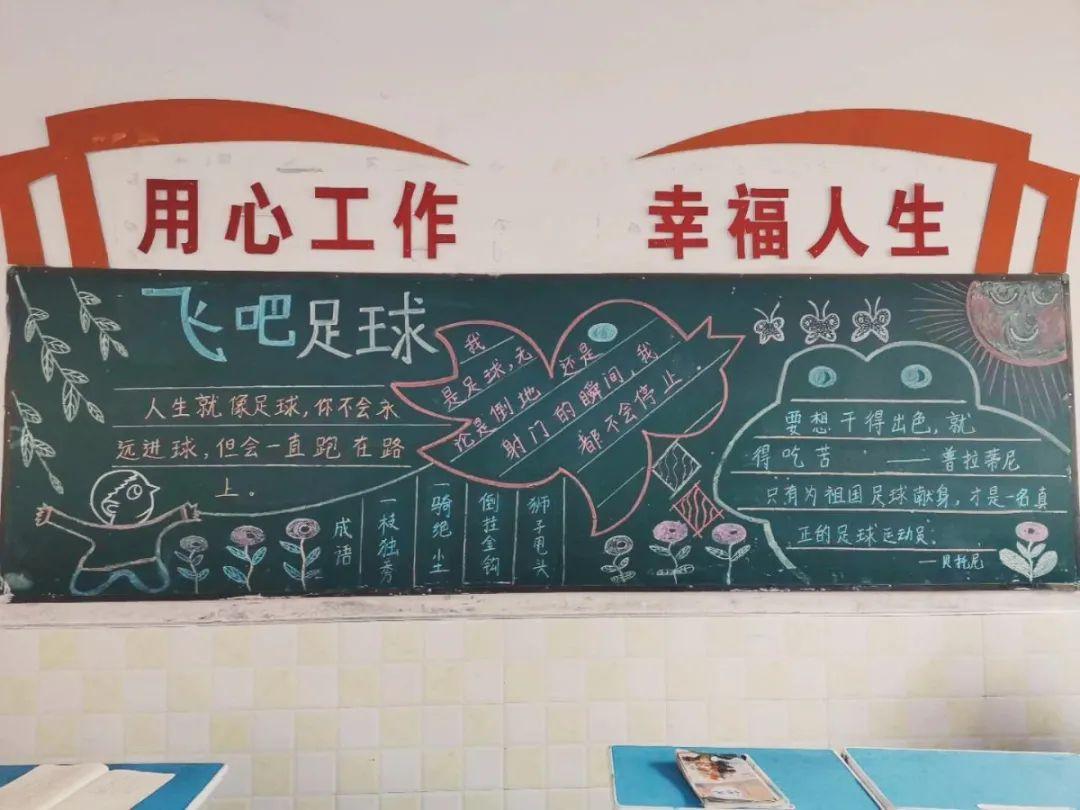 用心工作
幸福人生
飞吧足球
人生就像足球，你不会永
远进球，但会一直跑在路
上。
我
是足球，无
论是倒地 还是
射门的瞬间，我
都不会停止。
成语
一枝独秀
一骑绝尘
倒挂金钩
狮子甩头
要想干得出色，就
得吃苦 ——普拉蒂尼
只有为祖国足球献身，才是一名真
正的足球运动员。
—贝托尼